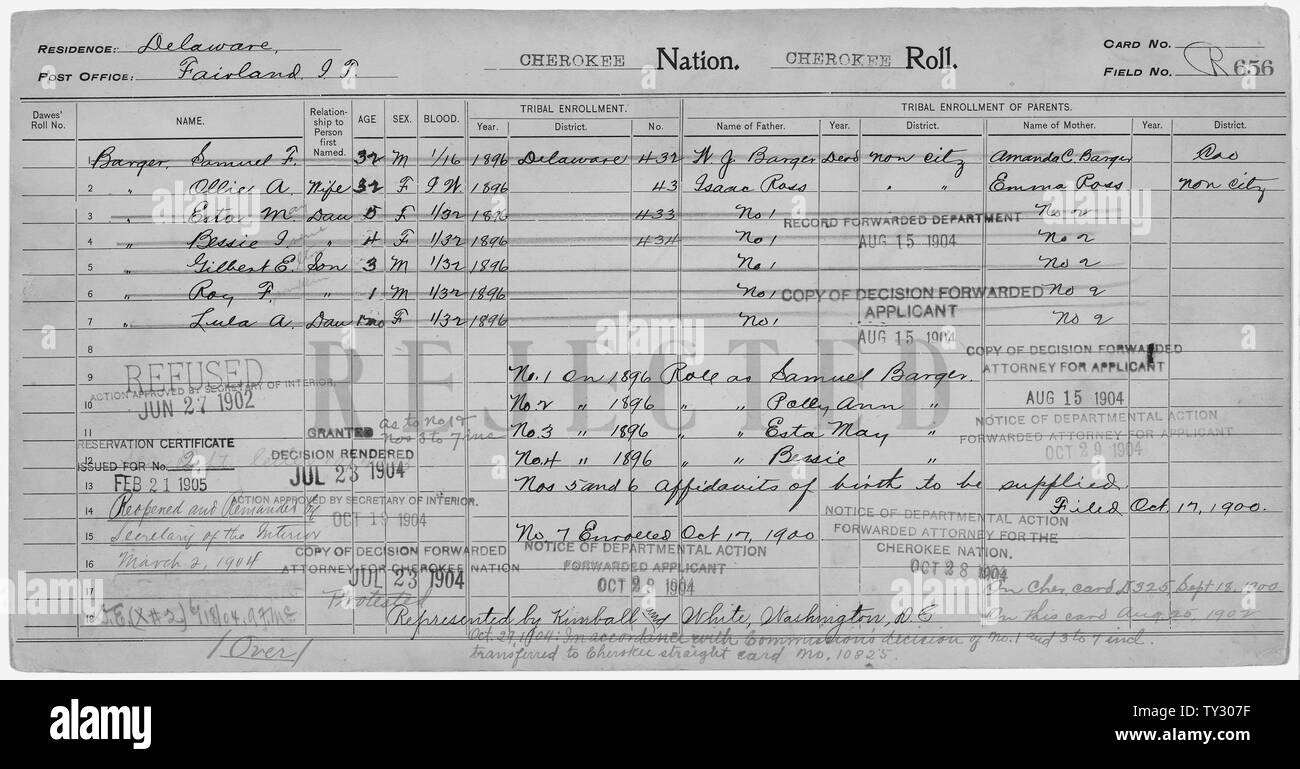 RESIDENCE: Delaware,
POST OFFICE: Fairland, I.T.
CHEROKEE Nation. CHEROKEE Roll.
CARD NO.
FIELD NO. R 656
Dawes' Roll No. NAME. Relationship to Person first Named. AGE SEX. BLOOD. TRIBAL ENROLLMENT. TRIBAL ENROLLMENT OF PARENTS.
Year. District. No. Name of Father. Year. District. Name of Mother. Year. District.
1 Barger, Samuel F. 32 M 1/16 1896 Delaware 432 W J Barger Dead non citz Amanda C. Barger
2 " Ollie A. Wife 32 F I W 1896 43 Isaac Ross " " Emma Ross non citz
3 " Esta M. Dau 5 F 1/32 1896 433 No 1 No 2
RECORD FORWARDED DEPARTMENT
4 " Bessie I. " 4 F 1/32 1896 434 No 1 No 2
AUG 15 1904
5 " Gilbert E. Son 3 M 1/32 1896 No 1 No 2
6 " Roy F. " 1 M 1/32 1896 No 1 No 2
COPY OF DECISION FORWARDED
APPLICANT
7 " Lula A. Dau 1mo F 1/32 1896 No 1 No 2
AUG 15 1904
8
REJECTED
COPY OF DECISION FORWARDED
ATTORNEY FOR APPLICANT
AUG 15 1904
9 No. 1 on 1896 Roll as Samuel Barger.
REFUSED
ACTION APPROVED BY SECRETARY OF INTERIOR.
JUN 27 1902
10 No. 2 " 1896 " " Polly Ann "
11 No. 3 " 1896 " " Esta May "
GRANTED as to No. 1 &
Nos 3 to 7 inc
NOTICE OF DEPARTMENTAL ACTION
FORWARDED ATTORNEY FOR APPLICANT
OCT 29 1904
RESERVATION CERTIFICATE
ISSUED FOR No. 2
FEB 21 1905
12 No. 4 " 1896 " " Bessie "
DECISION RENDERED
JUL 23 1904
13 Nos 5 and 6 affidavits of birth to be supplied.
14 Filed Oct. 17, 1900.
Reopened and Remanded by
ACTION APPROVED BY SECRETARY OF INTERIOR.
OCT 19 1904
15 Secretary of the Interior No. 7 Enrolled Oct 17, 1900
NOTICE OF DEPARTMENTAL ACTION
FORWARDED ATTORNEY FOR THE
CHEROKEE NATION.
OCT 28 1904
16 March 2, 1904
COPY OF DECISION FORWARDED
ATTORNEY FOR CHEROKEE NATION
JUL 23 1904
NOTICE OF DEPARTMENTAL ACTION
FORWARDED APPLICANT
OCT 28 1904
17 Protested
On Cher. card D325, Sept 18, 1900
18 Represented by Kimball and White, Washington, D.C.
On this card Aug. 25, 1902
Oct. 27, 1904: In accordance with Commission's decision of No. 1 and 3 to 7 incl.
transferred to Cherokee straight card No. 10825.
(Over)
alamy
a
alamy
Image ID: TY307F
www.alamy.com